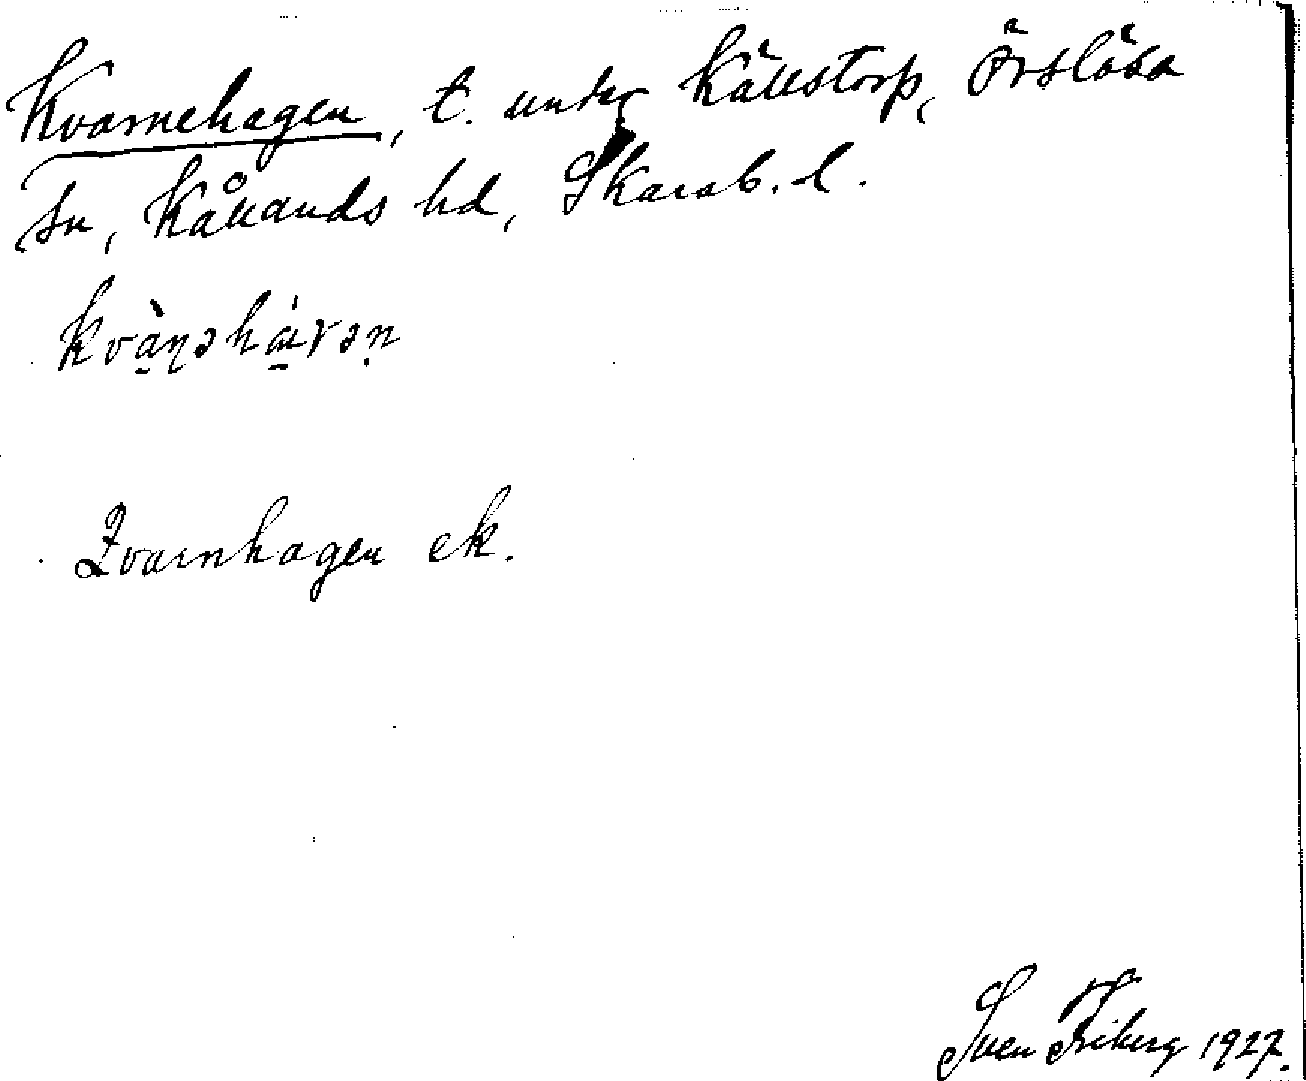 Kvarnehagen, t. under Källstorp, Örslösa
sn, Kållands hd, Skarab. l.
kvàɳəhàɣən
Qvarnhagen ek.
Sven Friberg 1927.